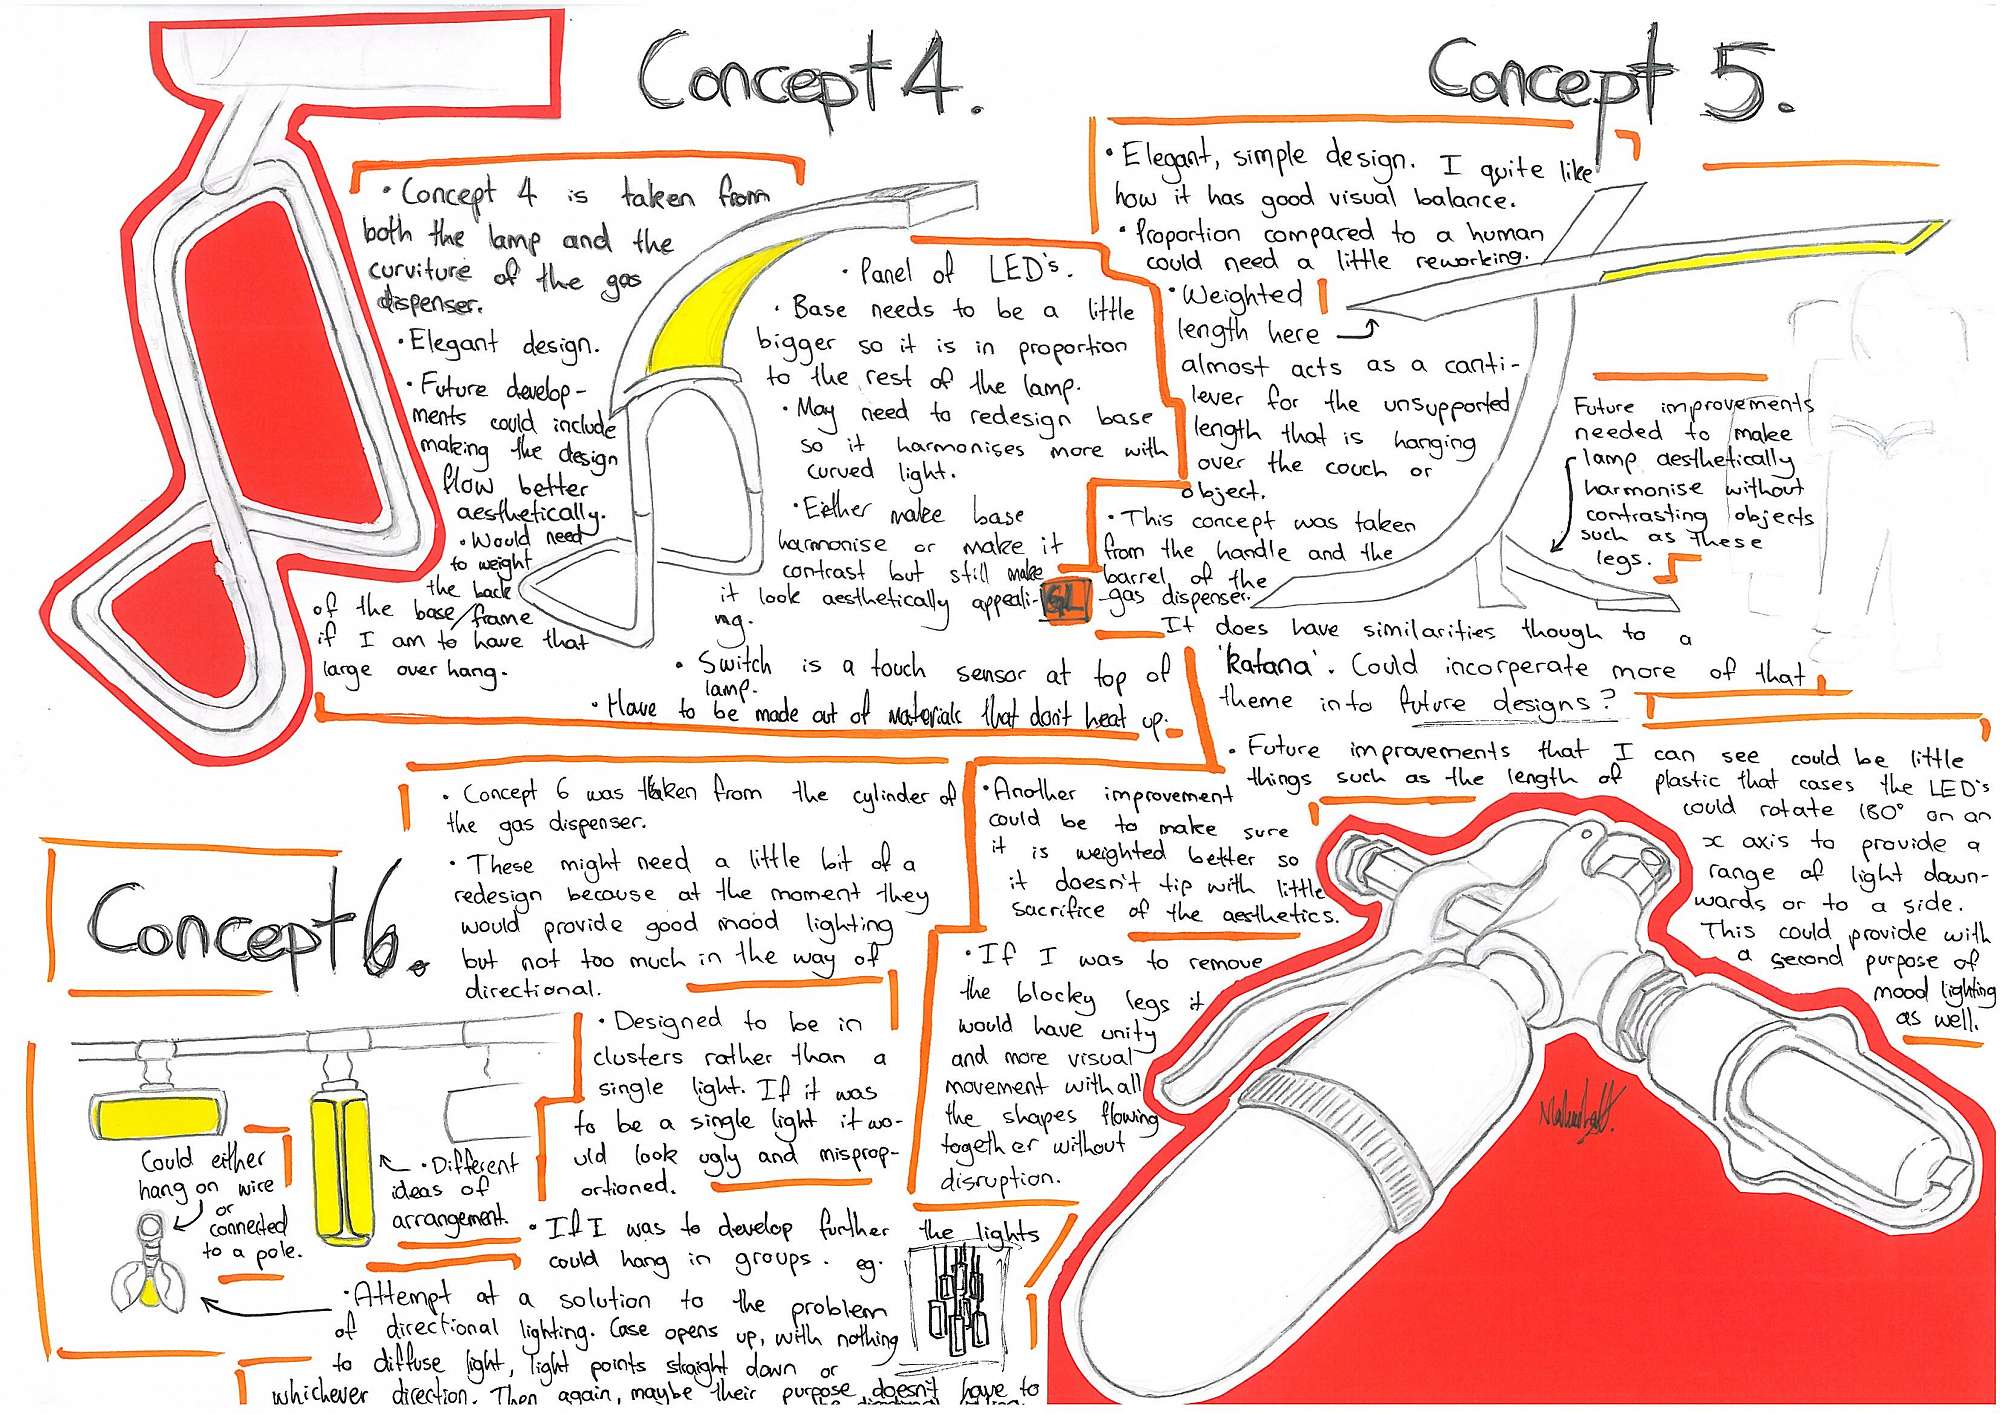 Concept 4.
• Concept 4 is taken from
both the lamp and the
curviture of the gas
dispenser.
• Elegant design.
• Future develop-
ments could include
making the design
flow better
aesthetically.
• Would need
to weight
the back
of the base/frame
if I am to have that
large over hang.
• Panel of LED's.
• Base needs to be a little
bigger so it is in proportion
to the rest of the lamp.
• May need to redesign base
so it harmonises more with
curved light.
• Either make base
harmonise or make it
contrast but still make
it look aesthetically appeali-
ng.
• Switch is a touch sensor at top of
lamp.
• Have to be made out of materials that don't heat up.
GL
Concept 5.
• Elegant, simple design. I quite like
how it has good visual balance.
• Proportion compared to a human
could need a little reworking.
• Weighted
length here
almost acts as a canti-
lever for the unsupported
length that is hanging
over the couch or
object.
• This concept was taken
from the handle and the
barrel of the
gas dispenser.
It does have similarities though to a
'katana'. Could incorperate more of that
theme into future designs?
Future improvements
needed to make
lamp aesthetically
harmonise without
contrasting objects
such as these
legs.
• Future improvements that I can see could be little
things such as the length of plastic that cases the LED's
could rotate 180° on an
x axis to provide a
range of light down-
wards or to a side.
This could provide with
a second purpose of
mood lighting
as well.
• Another improvement
could be to make sure
it is weighted better so
it doesn't tip with little
sacrifice of the aesthetics.
• If I was to remove
the blocky legs it
would have unity
and more visual
movement with all
the shapes flowing
together without
disruption.
Concept 6.
• Concept 6 was taken from the cylinder of
the gas dispenser.
• These might need a little bit of a
redesign because at the moment they
would provide good mood lighting
but not too much in the way of
directional.
• Designed to be in
clusters rather than a
single light. If it was
to be a single light it wo-
uld look ugly and misprop-
ortioned.
Could either
hang on wire
or
connected
to a pole.
• Different
ideas of
arrangement.
• If I was to develop further the lights
could hang in groups. eg.
• Attempt at a solution to the problem
of directional lighting. Case opens up, with nothing
to diffuse light, light points straight down or
whichever direction. Then again, maybe their purpose doesn't have to